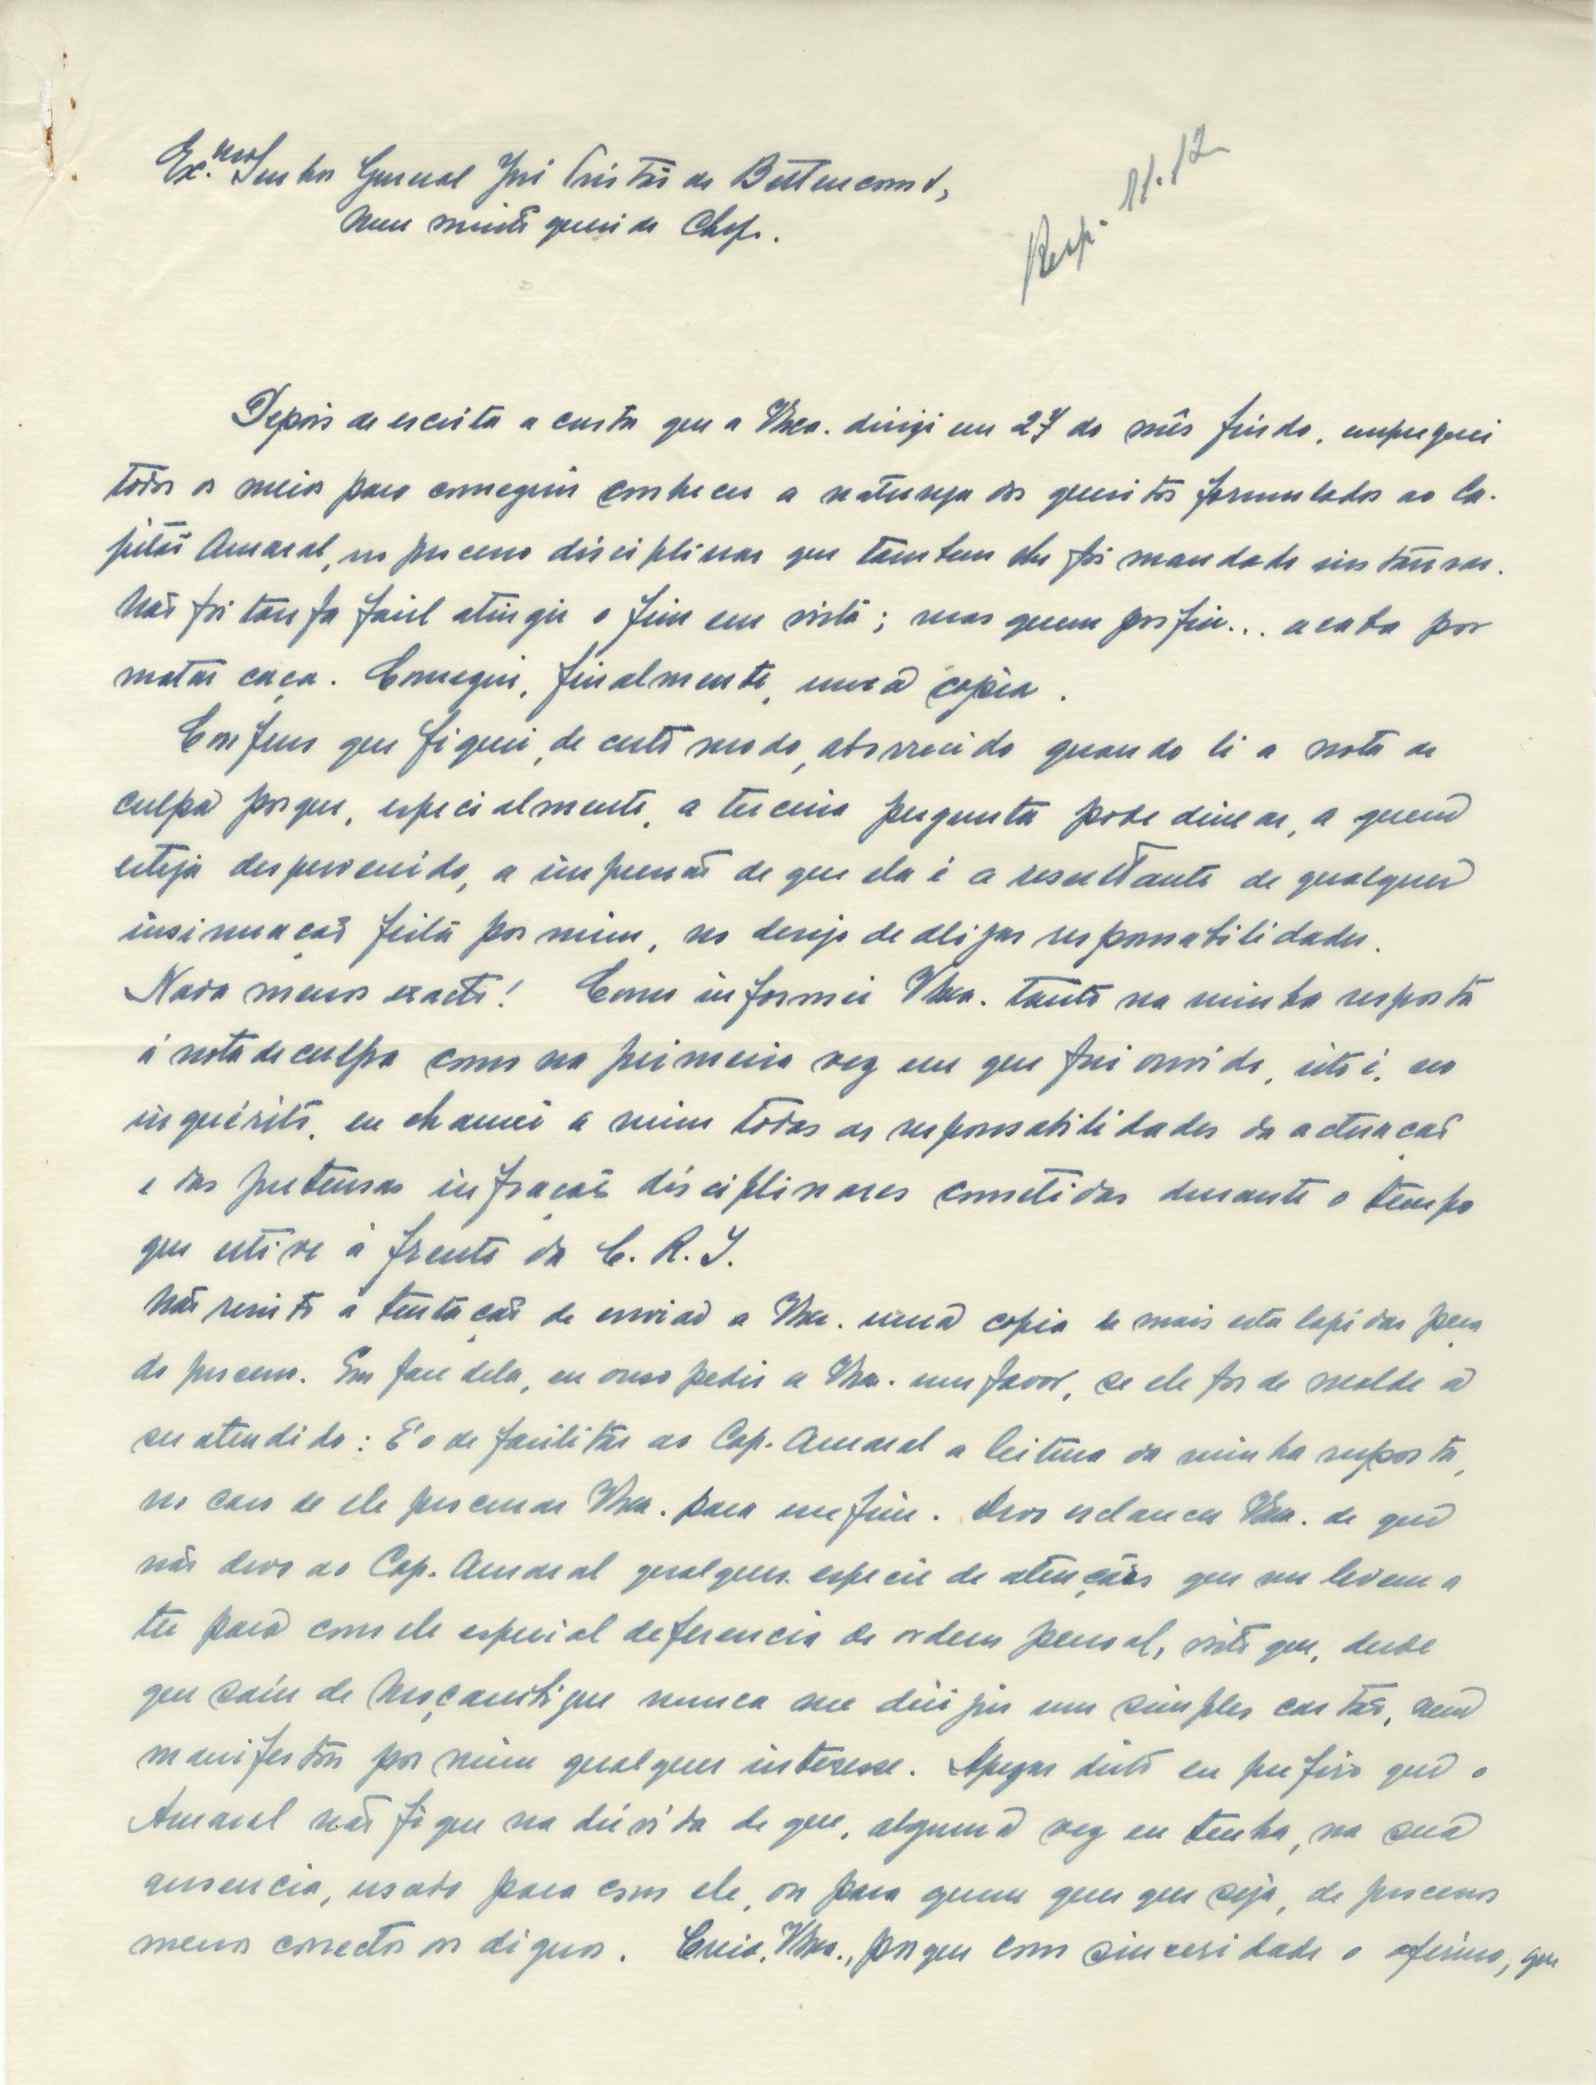 Ex.mo Senhor General José Tristão de Bettencourt,
Meu muito querido Chefe.
Resp. 11.12
Depois de escrita a carta que a V.Exa. dirigi em 27 do mês findo, empreguei
todos os meios para conseguir conhecer a natureza dos quesitos formulados ao Ca-
pitão Amaral, no processo disciplinar que tambem lhe foi mandado instaurar.
Não foi tarefa facil atingir o fim em vista; mas quem porfia... acaba por
matar caça. Consegui, finalmente, uma copia.
Confesso que fiquei, de certo modo, aborrecido quando li a nota de
culpa porque, especialmente, a terceira pergunta pode deixar, a quem
esteja desprevenido, a impressão de que ela é a resultante de qualquer
insinuação feita por mim, no desejo de alijar responsabilidades.
Nada menos exacto! Como informei V.Exa. tanto na minha resposta
á nota de culpa como na primeira vez em que fui ouvido, isto é, no
inquérito, eu chamei a mim todas as responsabilidades da actuação
e das pretensas infracções disciplinares cometidas durante o tempo
que estive á frente da C. R. I.
Não resisto á tentação de enviar a V.Exa. uma copia de mais esta lapidar peça
do processo. Em face dela, eu ouso pedir a V.Exa. um favor, se ele for de molde a
ser atendido: É o de facilitar ao Cap. Amaral a leitura da minha resposta,
no caso de ele procurar V.Exa. para esse fim. Devo esclarecer V.Exa. de que
não devo ao Cap. Amaral qualquer especie de atenções que me levem a
ter para com ele especial deferencia de ordem pessoal, visto que, desde
que saíu de Moçambique nunca me dirigiu um simples cartão, nem
manifestou por mim qualquer interesse. Apezar disto eu prefiro que o
Amaral não fique na dúvida de que, alguma vez eu tenha, na sua
ausencia, usado para com ele, ou para quem quer que seja, de processos
menos correctos ou dignos. Creia, V.Exa., porque com sinceridade o afirmo, que